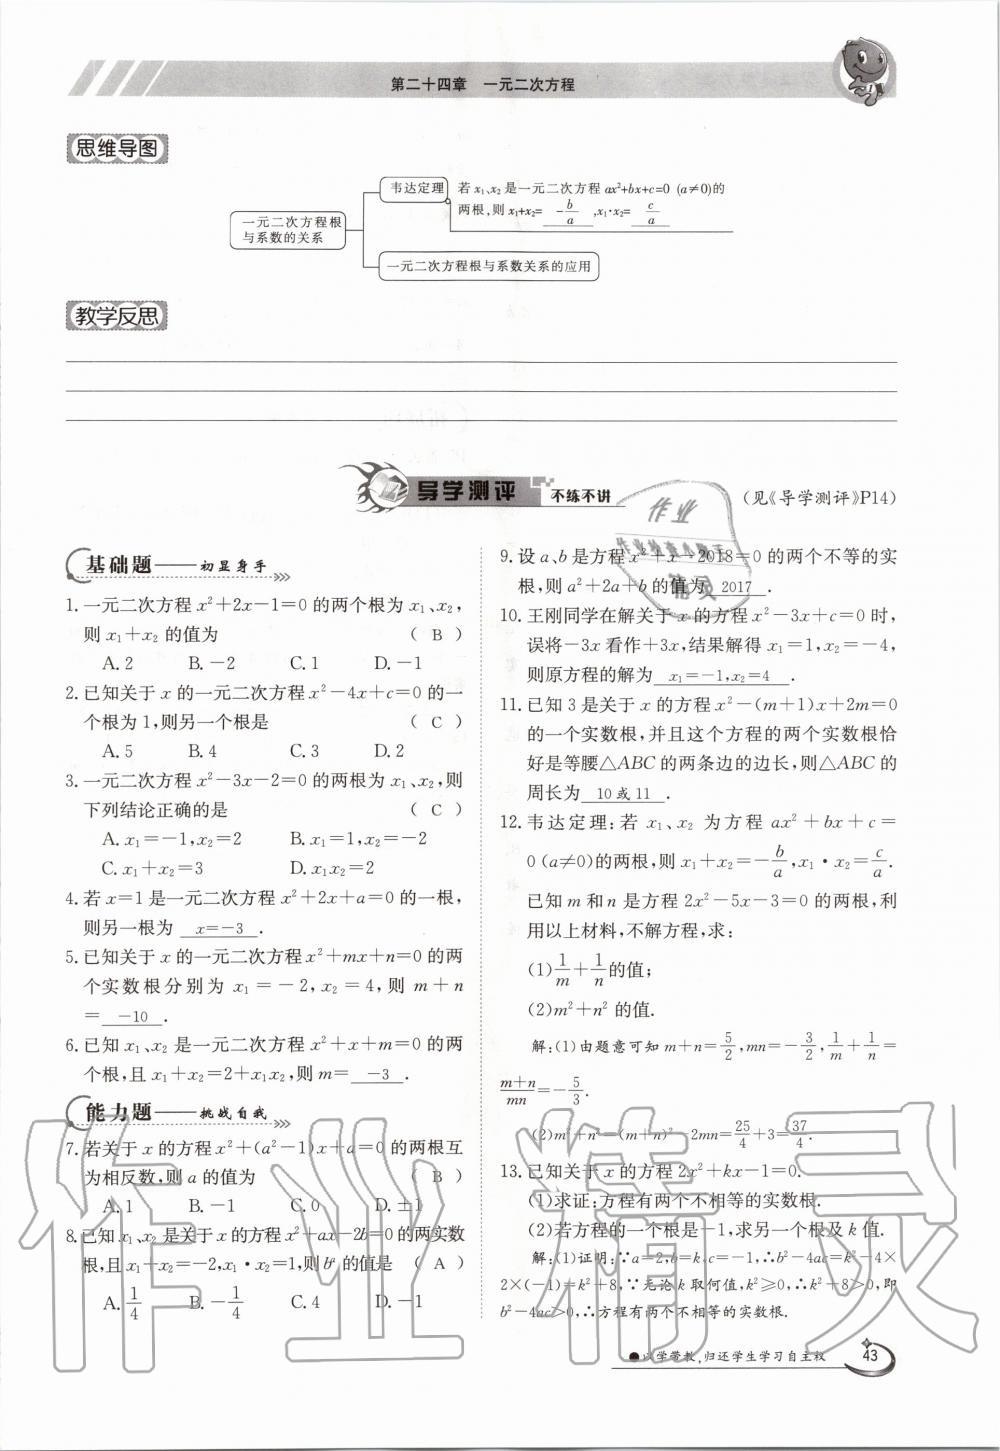 第二十四章 一元二次方程
思维导图
一元二次方程根与系数的关系
韦达定理
若x₁、x₂是一元二次方程ax²+bx+c=0 (a≠0)的
两根,则x₁+x₂= -b/a ,x₁·x₂= c/a
一元二次方程根与系数关系的应用
教学反思
导学测评 不练不讲
(见《导学测评》P14)
基础题——初显身手
1.一元二次方程x²+2x-1=0的两个根为x₁、x₂,
则x₁+x₂的值为 ( B )
A.2 B.-2 C.1 D.-1
2.已知关于x的一元二次方程x²-4x+c=0的一
个根为1,则另一个根是 ( C )
A.5 B.4 C.3 D.2
3.一元二次方程x²-3x-2=0的两根为x₁、x₂,则
下列结论正确的是 ( C )
A.x₁=-1,x₂=2 B.x₁=1,x₂=-2
C.x₁+x₂=3 D.x₁x₂=2
4.若x=1是一元二次方程x²+2x+a=0的一根,
则另一根为 x=-3 .
5.已知关于x的一元二次方程x²+mx+n=0的两
个实数根分别为x₁=-2,x₂=4,则m+n
= -10 .
6.已知x₁、x₂是一元二次方程x²+x+m=0的两
个根,且x₁+x₂=2+x₁x₂,则m= -3 .
能力题——挑战自我
7.若关于x的方程x²+(a²-1)x+a=0的两根互
为相反数,则a的值为 ( B )
A.1 B.-1 C.0 D.±1
8.已知x₁、x₂是关于x的方程x²+ax-2b=0的两实数
根,且x₁+x₂=-2,x₁·x₂=1,则bᵃ的值是 ( A )
A.1/4 B.-1/4 C.4 D.-1
9.设a、b是方程x²+x-2018=0的两个不等的实
根,则a²+2a+b的值为 2017 .
10.王刚同学在解关于x的方程x²-3x+c=0时,
误将-3x看作+3x,结果解得x₁=1,x₂=-4,
则原方程的解为 x₁=-1,x₂=4 .
11.已知3是关于x的方程x²-(m+1)x+2m=0
的一个实数根,并且这个方程的两个实数根恰
好是等腰△ABC的两条边的边长,则△ABC的
周长为 10或11 .
12.韦达定理:若x₁、x₂为方程ax²+bx+c=
0(a≠0)的两根,则x₁+x₂=-b/a,x₁·x₂=c/a.
已知m和n是方程2x²-5x-3=0的两根,利
用以上材料,不解方程,求:
(1)1/m+1/n的值;
(2)m²+n²的值.
解:(1)由题意可知m+n=5/2,mn=-3/2,1/m+1/n=
(m+n)/mn=-5/3.
(2)m²+n²=(m+n)²-2mn=25/4+3=37/4.
13.已知关于x的方程2x²+kx-1=0.
(1)求证:方程有两个不相等的实数根.
(2)若方程的一个根是-1,求另一个根及k值.
解:(1)证明:∵a=2,b=k,c=-1,∴b²-4ac=k²-4×
2×(-1)=k²+8,∵无论k取何值,k²≥0,∴k²+8>0,即
b²-4ac>0,∴方程有两个不相等的实数根.
●以学带教,归还学生学习自主权 43
作业
作业检查小助手
精灵
作业精灵